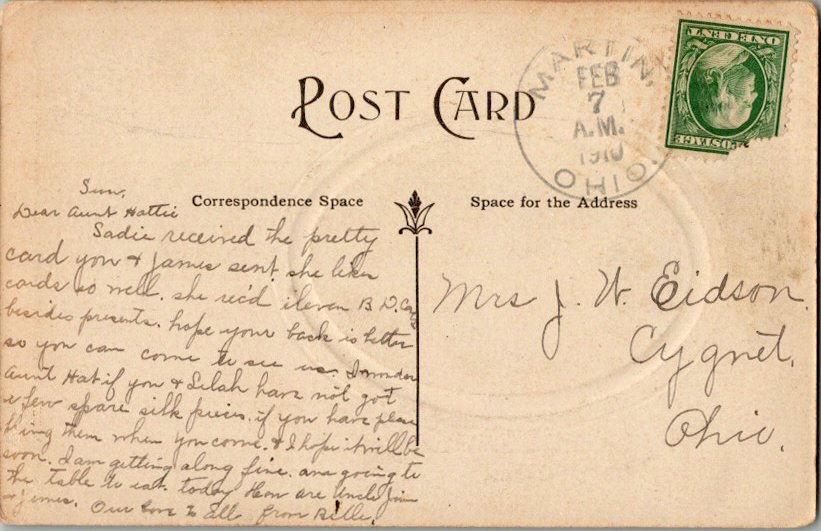 POST CARD
MARTIN,
FEB
7
A.M.
1910
OHIO.
ONE CENT
POSTAGE
Correspondence Space
Space for the Address
Sun,
Dear Aunt Hattie
Sadie received the pretty
card you & James sent. she likes
cards so well. she rec'd eleven B D. Cards
besides presents. hope your back is better
so you can come to see us. I wonder
Aunt Hat if you & Lelah have not got
a few spare silk pieces. if you have please
bring them when you come. & I hope it will be
soon. I am getting along fine. am going to
the table to eat today How are Uncle Jim
& James. Our love to all from Belle.
Mrs J. W. Eidson.
Cygnet,
Ohio.